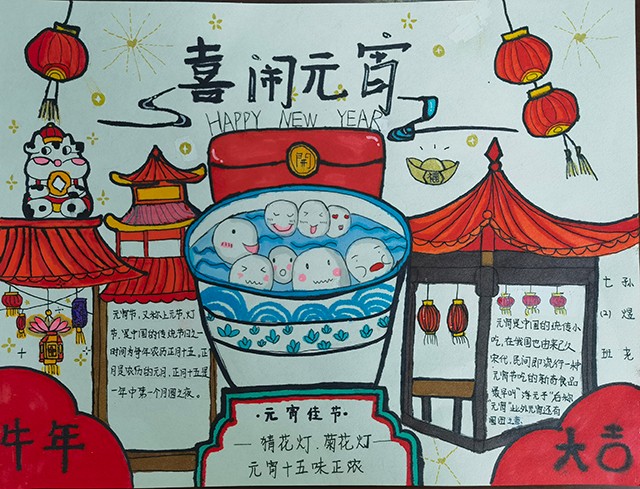 喜闹元宵
HAPPY NEW YEAR
開
福
元宵节,又称上元节,灯
节,是中国的传统节日之一
时间为每年农历正月十五,正
月是农历的元月,正月十五是
一年中第一个月圆之夜。
·元宵佳节·
猜花灯.菊花灯
元宵十五味正浓
元宵是中国的传统小
吃,在我国也由来已久
宋代,民间即流行一种
元宵节吃的新奇食品
最早叫"浮元子"后称
元宵"此外元宵还有
之意.
七(2)班
孙煜
牛年
大吉